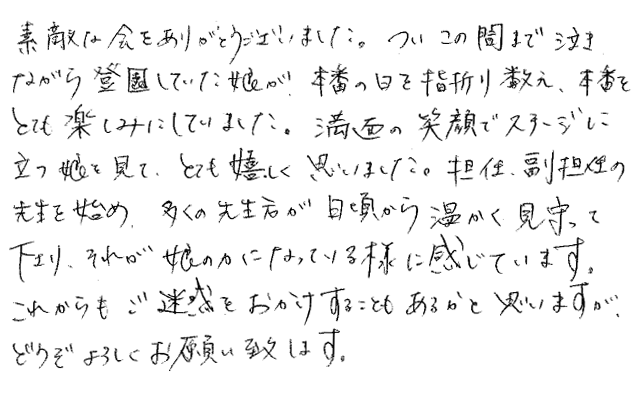 素敵な会をありがとうございました。ついこの間まで泣き
ながら登園していた娘が、本番の日を指折り数え、本番を
とても楽しみにしていました。満面の笑顔でステージに
立つ娘を見て、とても嬉しく思いました。担任、副担任の
先生を始め、多くの先生方が日頃から温かく見守って
下さり、それが娘の力になっている様に感じています。
これからもご迷惑をおかけすることもあるかと思いますが、
どうぞよろしくお願い致します。